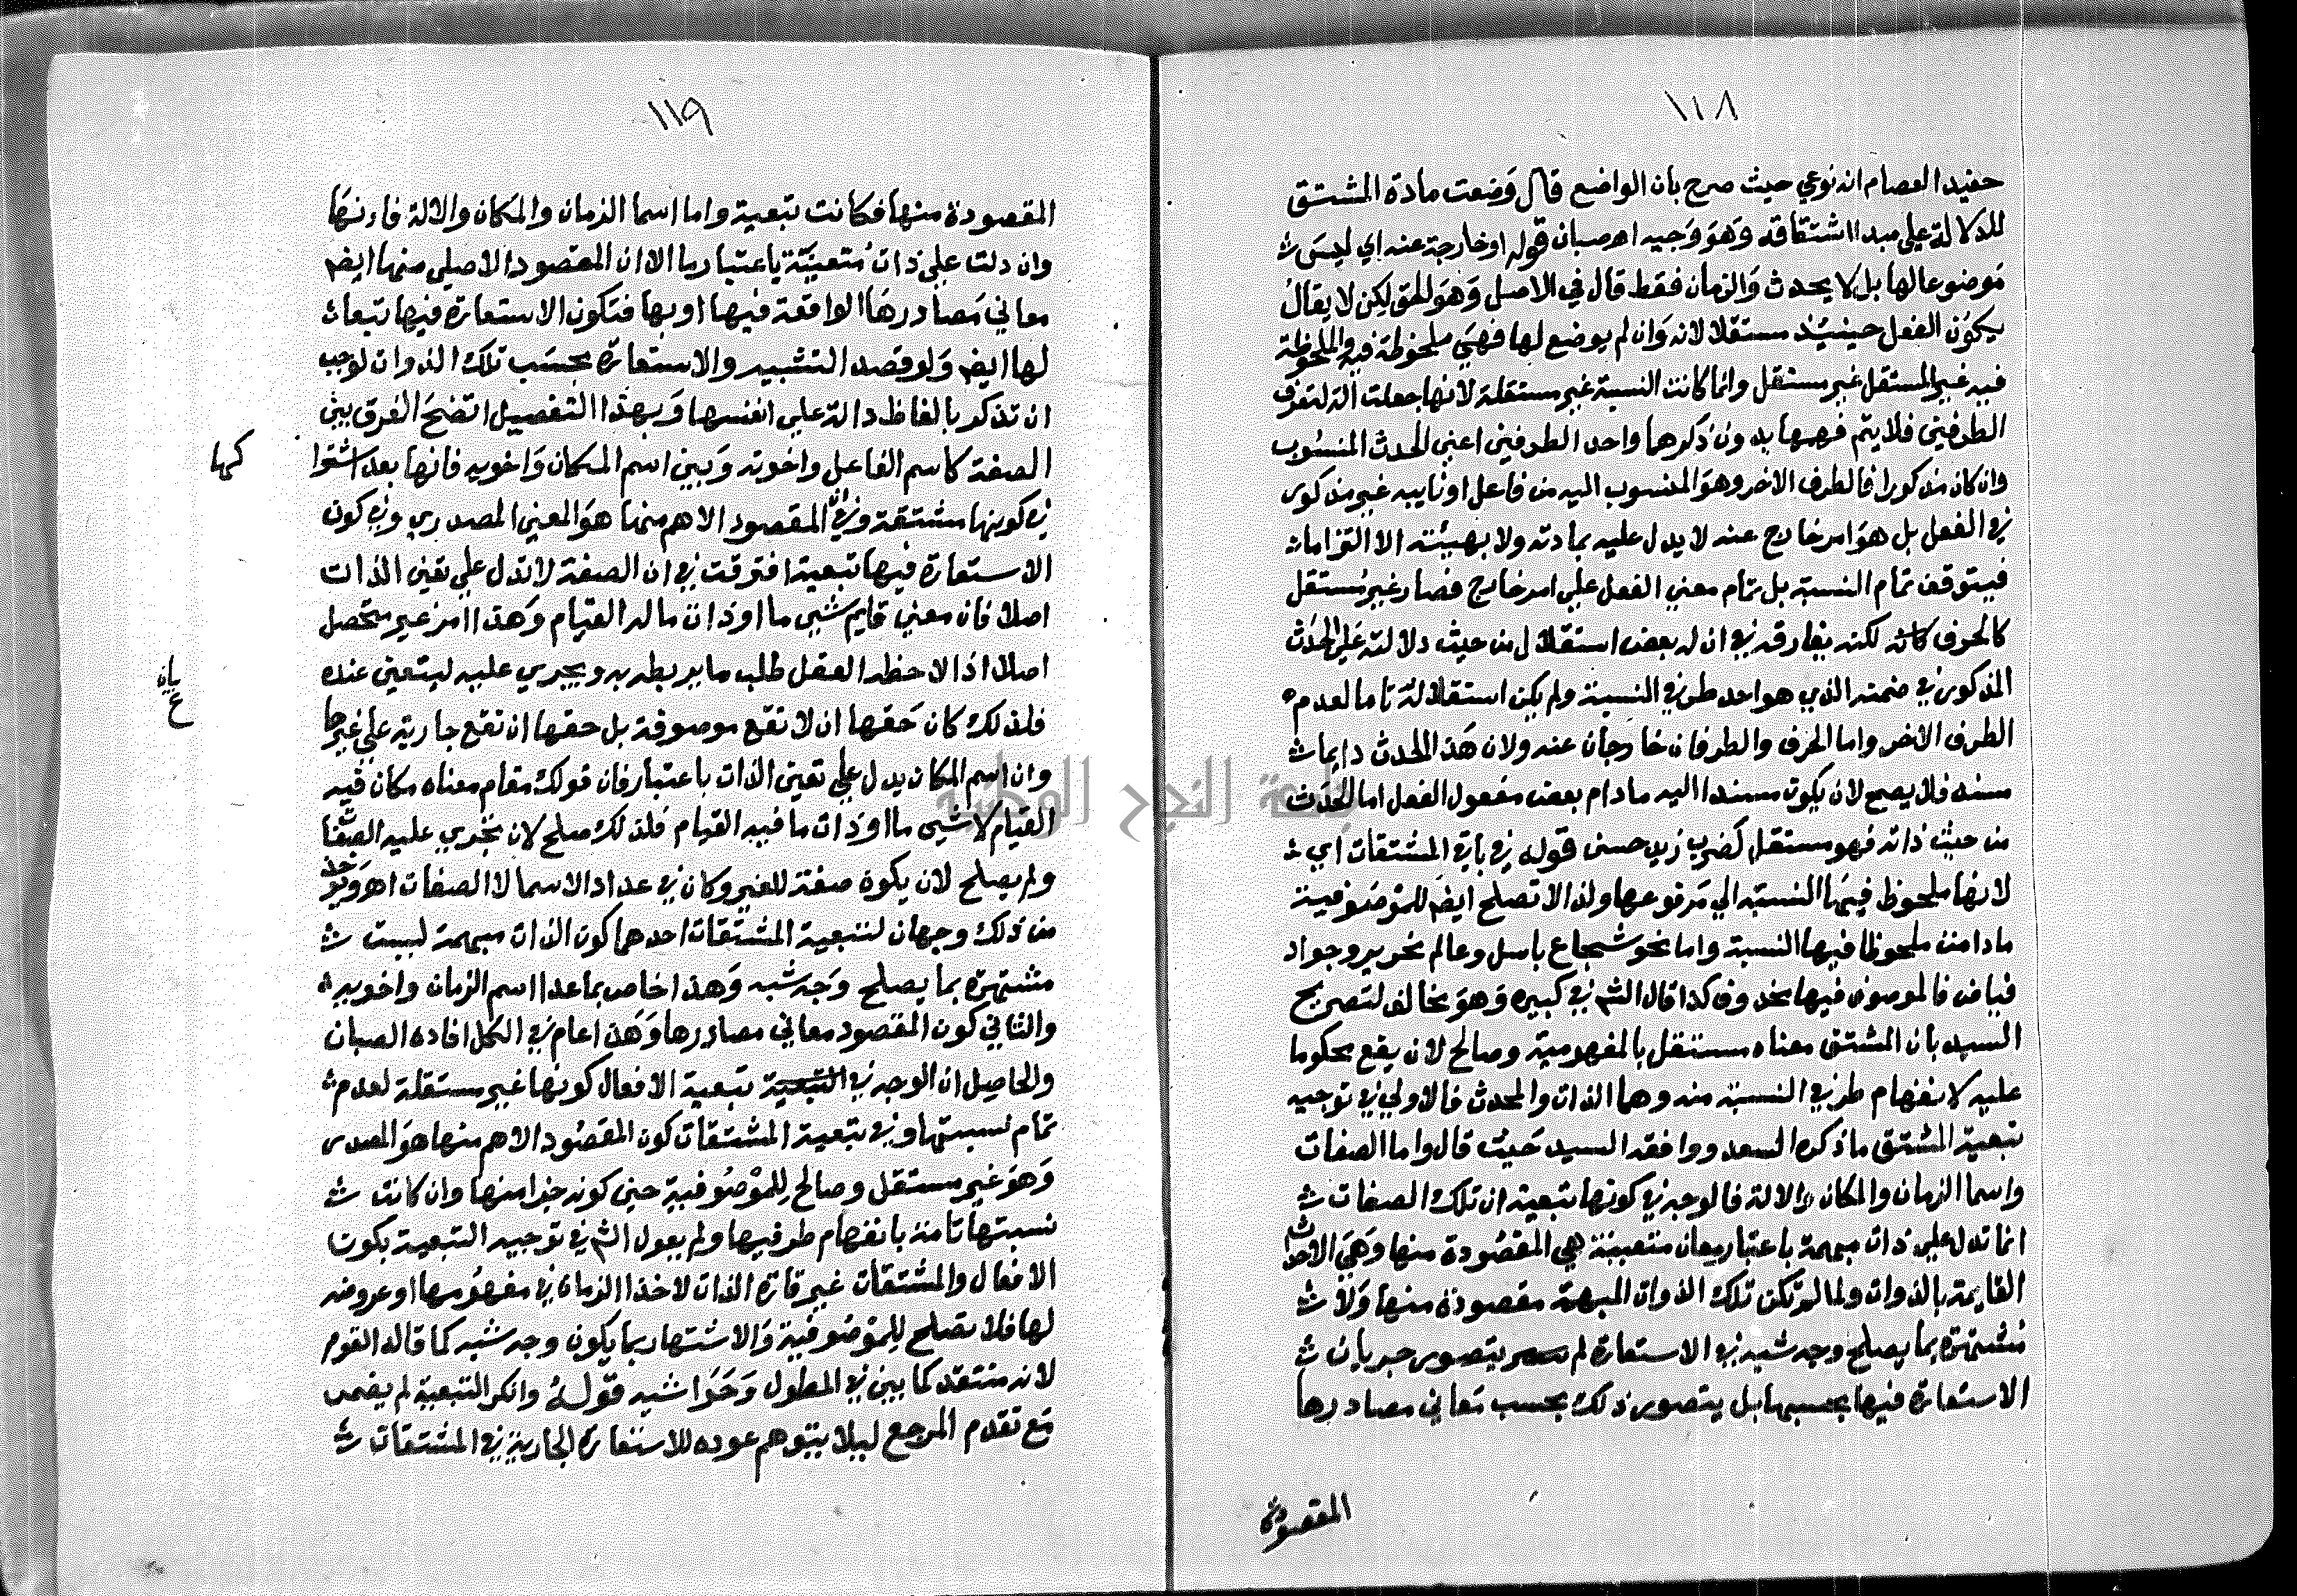 ١١٨
حفيد العصام انه نوعي حيث صرح بان الواضع قال وضعت مادة المشتق
للدلالة علي مبدا اشتقاقه وهو وجيه اهر صبان قوله او خارجة عنه اي ليس
موضوعا لها بل لا يحدث والزمان فقط قال في الاصل وهو الحق لكن لا يقال
يكون الفعل حينيذ مستقلا لانه وان لم يوضع لها فهي ملحوظة فيه والملحوظة
فيه غير المستقل غير مستقل وانما كانت النسبة غير مستقلة لانها جعلت الة لتعرف
الطرفين فلا يتم فهمها بدون ذكرهما واحد الطرفين اعني الحدث المنسوب
وان كان مذكورا فالطرف الاخر وهو المنسوب اليه من فاعل او نايبه غير مذكور
في الفعل بل هو امر خارج عنه لا يدل عليه بمادته ولا بهيئته الا التزاما
فيتوقف تمام النسبة بل تمام معني الفعل علي امر خارج فصار غير مستقل
كالحرف لكنه يفارقه في ان له بعض استقلال من حيث دلالته علي الحدث
المذكور في ضمنه الذي هو احد طرفي النسبة ولم يكن استقلاله تاما لعدم
الطرف الاخر واما الحرف والطرفان خارجان عنه ولان هذا الحدث دايما
مسند فلا يصح لان يكون مسندا اليه مادام بعض مفعول الفعل اما الحدث
من حيث ذاته فهو مستقل كضرب زيد حسن قوله في باقي المشتقات اي
لانها ملحوظ فيها النسبة الي مرفوعها ولذا لا تصلح ايضا للموصوفية
مادامت ملحوظا فيها النسبة واما نحو شجاع باسل وعالم نحرير وجواد
فياض فالموصوف فيها محذوف كذا قال الشم في كبيره وهو مخالف لتصريح
السيد بان المشتق معناه مستقل بالمفهومية وصالح لان يقع محكوما
عليه لانفهام طرفي النسبة منه وهما الذات والحدث فالاولي في توجيه
تبعية المشتق ما ذكره السعد ووافقه السيد حيث قال واما الصفات
واسما الزمان والمكان والالة فالوجه في كونها تبعية ان تلك الصفات
انما تدل علي ذات مبهمة باعتبار معان متعينة هي المقصودة منها وهي الاحداث
القايمة بالذوات ولما لم تكن تلك الذوات المبهمة مقصودة منها ولا
مشتهرة بما يصلح وجه شبه في الاستعارة لم يتصور جريان
الاستعارة فيها بحسبها بل يتصور ذلك بحسب معاني مصادرها
المقصودة
١١٩
المقصودة منها فكانت تبعية واما اسما الزمان والمكان والالة فانها
وان دلت علي ذات متعينة باعتبار ما الا ان المقصود الاصلي منها ايضا
معاني مصادرها الواقعة فيها او بها فتكون الاستعارة فيها تبعا
لها ايضا ولو قصد التشبيه والاستعارة بحسب تلك الذوات لوجب
ان تذكر بالفاظ دالة علي انفسها وبهذا التفصيل اتضح الفرق بين
الصفة كاسم الفاعل واخوته وبين اسم المكان واخويه فانها بعد اشترا
كها
في كونها مشتقة وفي ان المقصود الاهم منها هو المعني المصدري وفي كون
الاستعارة فيها تبعية افترقت في ان الصفة لا تدل علي تعين الذات
اصلا فان معني قايم شيي ما او ذات ما له القيام وهذا امر غير متحصل
اصلا اذا لاحظه العقل طلب ما يربطه به ويجري عليه ليتعين عنده
فلذلك كان حقها ان لا تقع موصوفة بل حقها ان تقع جارية علي غيرها
وان اسم المكان يدل علي تعين الذات باعتبار فان قولك مقام معناه مكان فيه
القيام لا شيي ما او ذات ما فيه القيام فلذلك صلح لان يجري عليه الصفات
ولم يصلح لان يكون صفة للغير وكان في عداد الاسما لا الصفات اهر ويوخذ
من ذلك وجهان لتبعية المشتقات احدهما كون الذات مبهمة ليست
مشتهرة بما يصلح وجه شبه وهذا خاص بما عدا اسم الزمان واخويه
والثاني كون المقصود معاني مصادرها وهذا عام في الكل افاده الصبان
والحاصل ان الوجه في تبعية الافعال كونها غير مستقلة لعدم
تمام نسبتها وفي تبعية المشتقات كون المقصود الاهم منها هو المصدر
وهو غير مستقل وصالح للموصوفية حين كونه جزا منها وان كانت
نسبتها تامة بانفهام طرفيها ولم يعول الشم في توجيه التبعية بكون
الافعال والمشتقات غير قارة الذات لاخذ الزمان في مفهومها او عروضه
لها فلا تصلح للموصوفية والاشتهار بما يكون وجه شبه كما قاله القوم
لانه منتقد كما بين في المطول وحواشيه قوله وانكر التبعية لم يضمر
مع تقدم المرجع ليلا يتوهم عوده للاستعارة الجارية في المشتقات